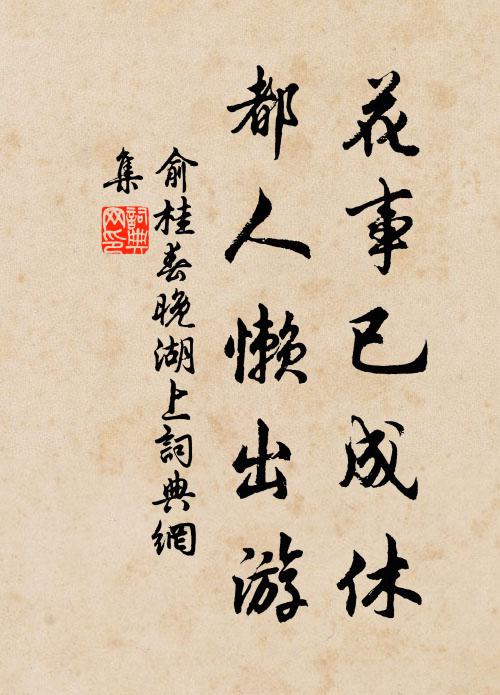 花事已成休
都人懒出游
俞桂春晚湖上詞典網
集
詞典
网印